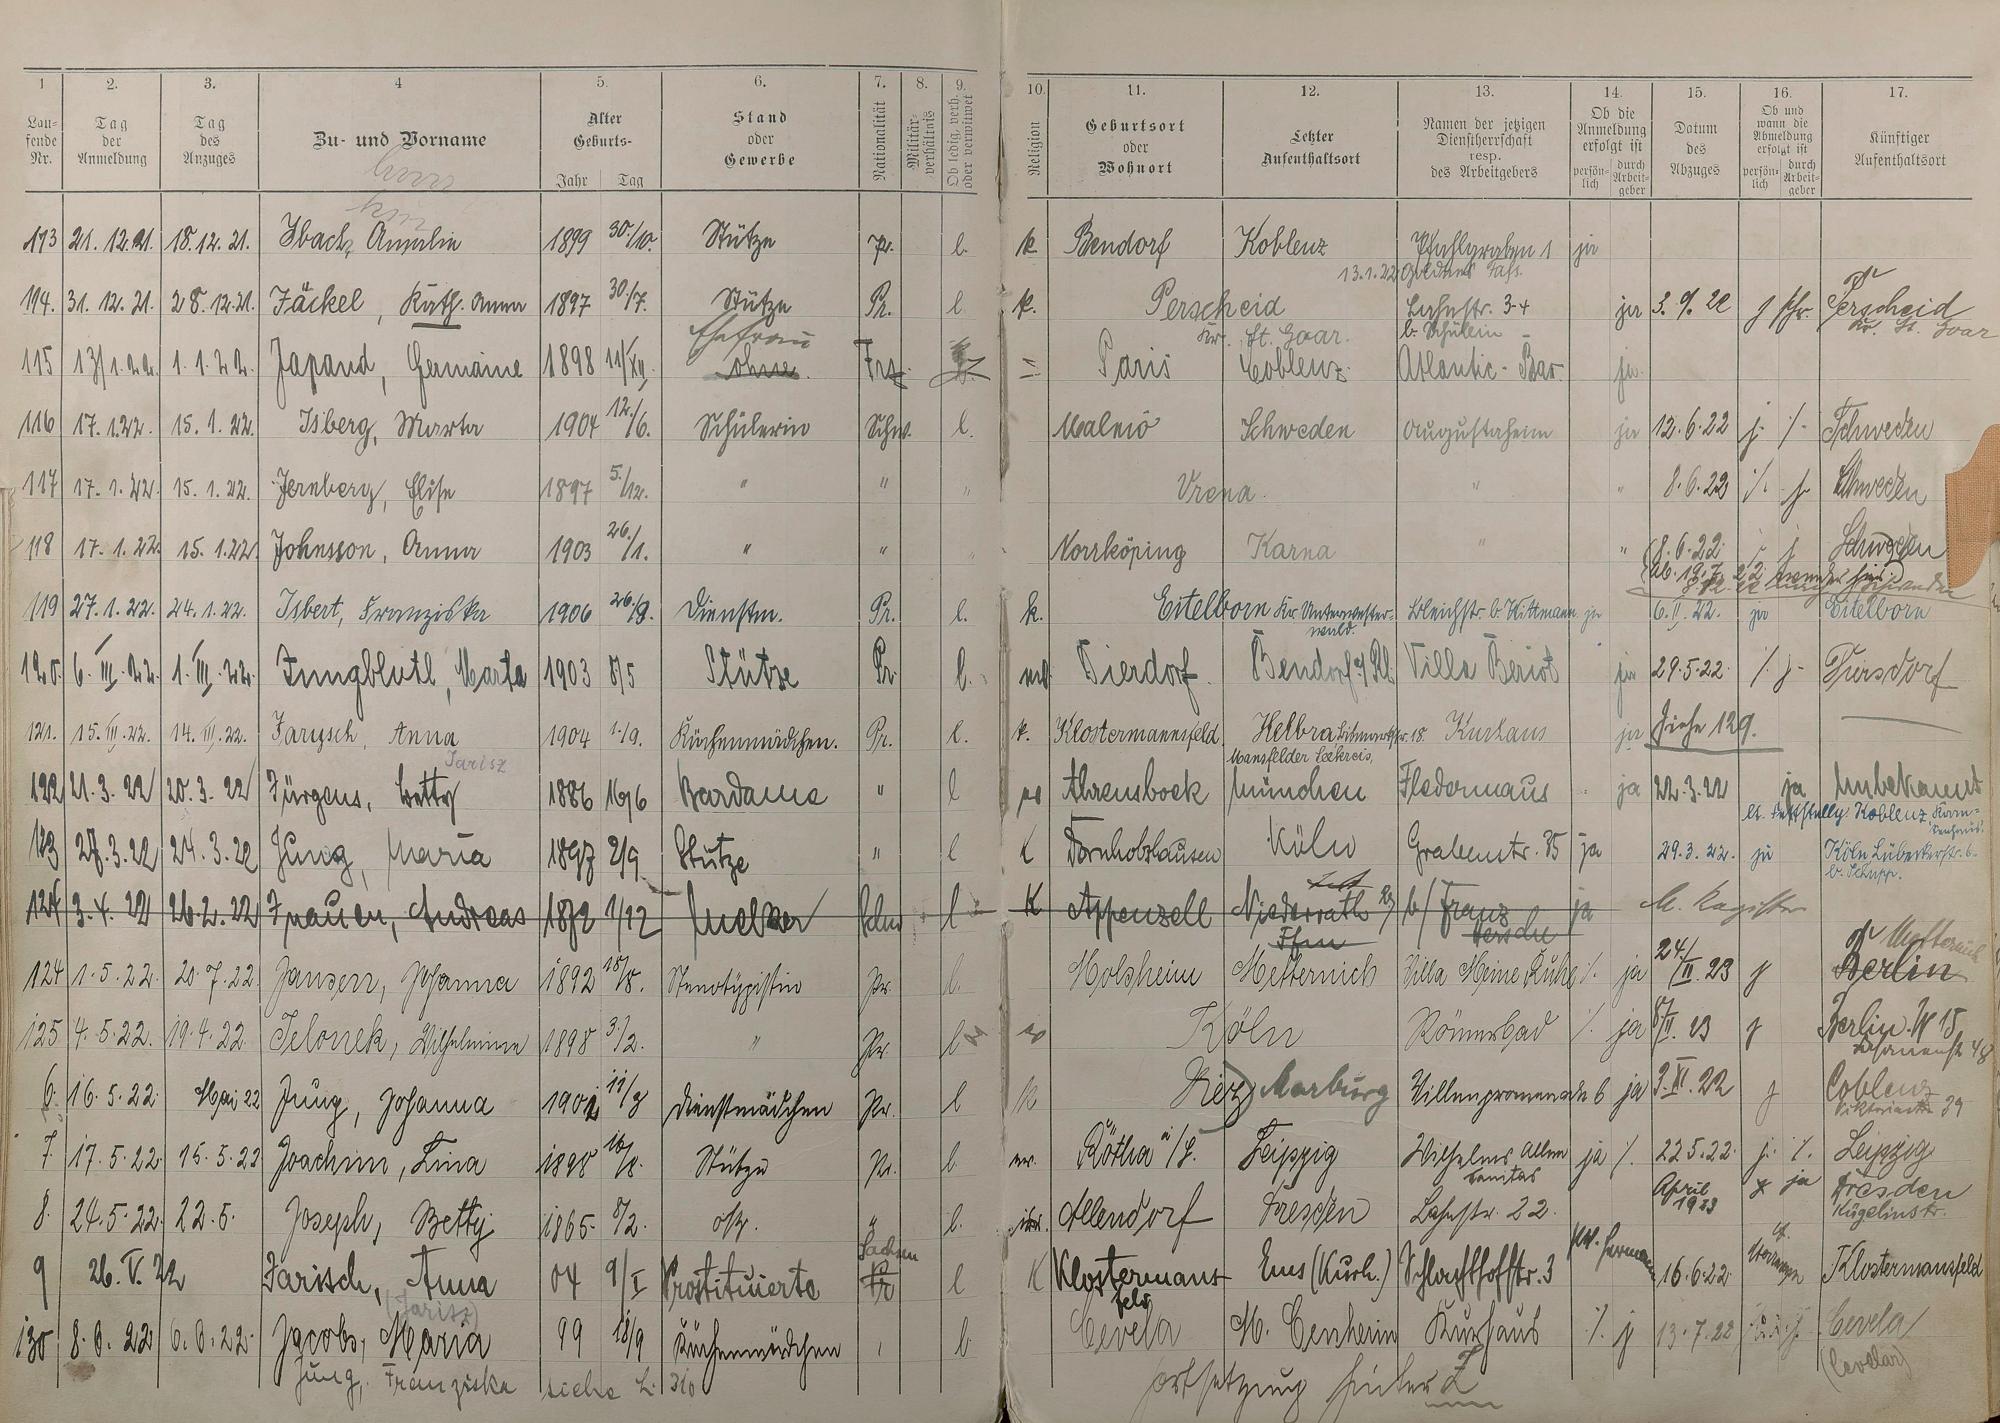 1 2. 3. 4 5. 6. 7. 8. 9. 10. 11. 12. 13. 14. 15. 16. 17.
Lau-fende Nr. Tag der Anmeldung Tag des Anzuges Zu- und Vorname Alter Geburts- Jahr Tag Stand oder Gewerbe Nationalität Militär-verhältnis Ob ledig, verh. oder verwitwet Religion Geburtsort oder Wohnort Letzter Aufenthaltsort Namen der jetzigen Dienstherrschaft resp. des Arbeitgebers Ob die Anmeldung erfolgt ist persön-lich durch Arbeit-geber Datum des Abzuges Ob und wann die Abmeldung erfolgt ist persön-lich durch Arbeit-geber Künftiger Aufenthaltsort
113 21.12.21. 18.12.21. Ibach, Amalie 1899 30./10. Stütze pr. l. k Bendorf Koblenz Pfahlgraben 1 ja
13.1.22 Goldnes Fass
114. 31.12.21. 28.12.21. Jäckel, Kath. Anna 1897 30./7. Stütze Pr. l k. Perscheid Lahnstr. 34 ja 3.9.22 j Perscheid
Ehefrau Kr. St. Goar. b. Schülein Kr. St. Goar
115 13/1.22. 1.1.22. Japaud, Germaine 1898 11/XII. ohne Frz = Paris Coblenz Atlantic-Bar. ja.
116 17.1.22. 15.1.22. Isberg, Marta 1904 12./6. Schülerin Schw. l. Malmö Schweden Augustaheim ja 12.6.22 j. ./. Schweden
117 17.1.22. 15.1.22. Jernberg, Elise 1897 5./12. " " " Vrena " " 8.6.23 ./. j. Schweden
118 17.1.22. 15.1.22. Johnsson, Anna 1903 26./1. " " " Norrköping Karna " " 8.6.22 j Schweden
ab. 19.7.22 wieder hier
119 27.1.22. 24.1.22. Isbert, Franziska 1906 26./9. Dienstm. Pr. l. k. Eitelborn Kr. Unterwester-wald. Bleichstr. b. Wittmann ja 6.II.22. ja Eitelborn
120. 6.III.22 1.III.22. Jungblutl, Marta 1903 8/5 Stütze Pr. l. Dierdorf. Bendorf a/Rh Villa Beriot ja 29.5.22 ./. j. Diersdorf
121. 15.III.22. 14.III.22. Jarysch, Anna 1904 1./9. Küchenmädchen. Pr. l. k. Klostermannsfeld Helbra 18. Kurhaus ja Siehe 129.
Jarisz Mansfelder Seekreis,
122 21.3.22 20.3.22 Jürgens, Betty 1886 16/6 Bardame " l Ahrensboek München Fledermaus ja 22.3.22 ja Unbekannt
lt. Feststellg. Koblenz, Kran-kenhaus.
123 27.3.22 24.3.22 Jung, Maria 1897 2/9 Stütze " l k Dornholzhausen Köln Grabenstr. 35 ja 29.3.22. ja Köln Lübeckerstr. 6.
124 3.4.22 26.2.22 Andreas 1872 1/12 Melker l K Appenzell Niederrath b/ Franz ja M. Register
Ffm
124 1.5.22. 20.7.22 Jansen, Johanna 1892 Stenotypistin Pr. l. Molsheim Metternich Villa Meine Ruhe ./. ja 24/II.23 j Berlin
125 4.5.22. 19.4.22 Jelonek, Wilhelmine 1898 3./2. " Pr. l Köln Römerbad ./. ja 8/II.23 j Berlin W 15
6. 16.5.22 Mai 22 Jung, Johanna 1901 11/8 Dienstmädchen Pr. l k Diez Marburg Villenpromenade 6 ja 9.XI.22 j Coblenz
39
7. 17.5.22. 15.5.22 Joachim, Lina 1898 Stütze Pr. l. Rötha i/S. Leipzig Wilhelms Allee ja ./. 22.5.22. j. ./. Leipzig
Sanitas
8. 24.5.22. 22.5. Joseph, Betty 1865. 8/2. ohne. l. isr. Allendorf Dresden Lahnstr. 22. April 1923 ja Dresden
Kügelinstr.
9 26.V.22 Jarisch, Anna 04 9/I Prostituierte Sachsen Pr l K Klostermans-feld Ems (Kurh.) Schlachthofstr. 3 16.6.22. Klostermansfeld
(Jarisz)
130 8.6.22 6.6.22. Jacobs, Maria 99 18/9 Küchenmädchen l Cevela Kurhaus ./. j 13.7.22 Cevela
Jung, Franziska siehe L. 310 Fortsetzung hinter Z (Cevelar)